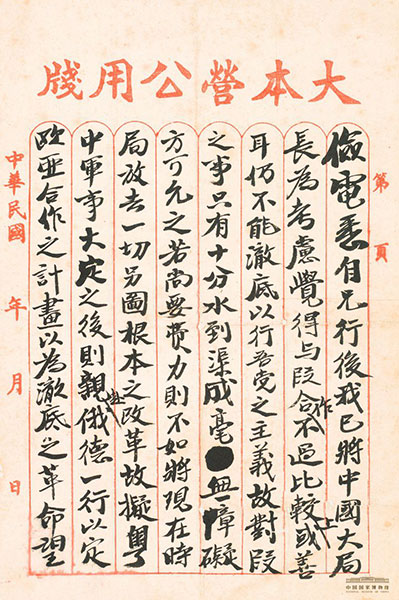 大本營公用牋
第 頁
儉電悉自兄行後我已將中國大局
長為考慮覺得与段合作不過比較上或善
耳仍不能澈底以行吾党之主義故對段
之事只有十分水到渠成毫無障礙
方可允之若尚要費力則不如將現在時
局放去一切另圖根本之改革故擬粵
中軍事大定之後則親赴俄德一行以定
歐亞合作之計畫以為澈底之革命望
中華民國 年 月 日
中国国家博物馆
NATIONAL MUSEUM OF CHINA